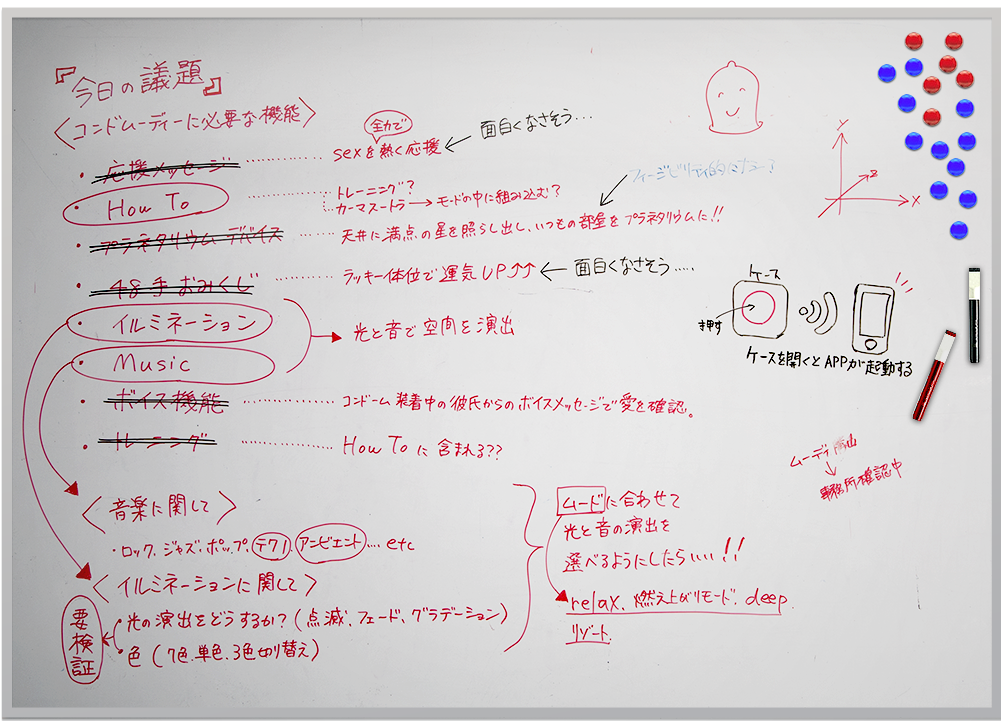 『今日の議題』
〈コンドムーディーに必要な機能〉
・応援メッセージ ………… sexを全力で熱く応援 ← 面白くなさそう…
・How To ………… トレーニング?
カーマスートラ → モードの中に組み込む?
フィージビリティ的にどう?
・プラネタリウムデバイス ………… 天井に満点の星を照らし出し、いつもの部屋をプラネタリウムに!!
・48手おみくじ ………… ラッキー体位で運気UP↑↑ ← 面白くなさそう……
・イルミネーション
光と音で空間を演出
・Music
・ボイス機能 ………… コンドーム装着中の彼氏からのボイスメッセージで愛を確認。
・トレーニング ………… How Toに含まれる??
〈音楽に関して〉
・ロック、ジャズ、ポップ、テクノ、アンビエント…. etc
〈イルミネーションに関して〉
要検証
・光の演出をどうするか?(点滅、フェード、グラデーション)
・色(7色、単色、3色切り替え)
ムードに合わせて
光と音の演出を
選べるようにしたらいい!!
relax、燃え上がりモード、deep、
リゾート、
Y
Z
X
ケース
押す
ケースを開くとAPPが起動する
ムーディ
事務所確認中